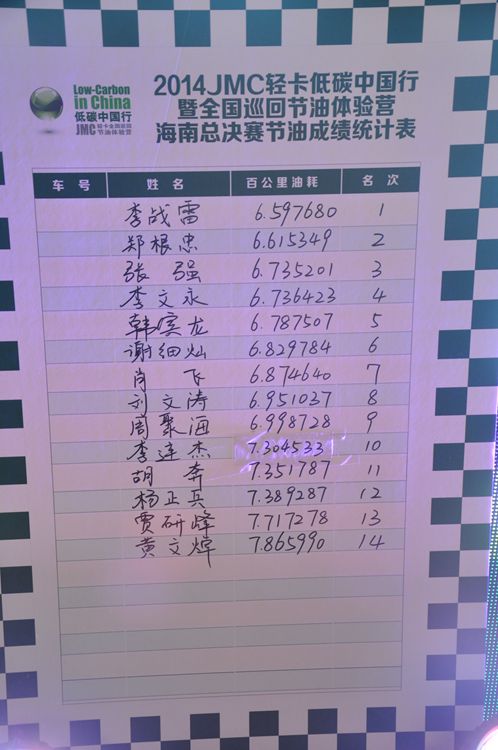 Low-Carbon
in China
低碳中国行
JMC 轻卡全国巡回
节油体验营
2014JMC轻卡低碳中国行
暨全国巡回节油体验营
海南总决赛节油成绩统计表
车号 姓名 百公里油耗 名次
李战雷 6.597680 1
郑根忠 6.615349 2
张强 6.735201 3
李文永 6.736423 4
韩宾龙 6.787507 5
谢细灿 6.829784 6
肖飞 6.874640 7
刘文涛 6.951037 8
周聚海 6.998728 9
李连杰 7.304533 10
胡奔 7.351787 11
杨正兵 7.389287 12
贾研峰 7.717278 13
黄文焯 7.865990 14